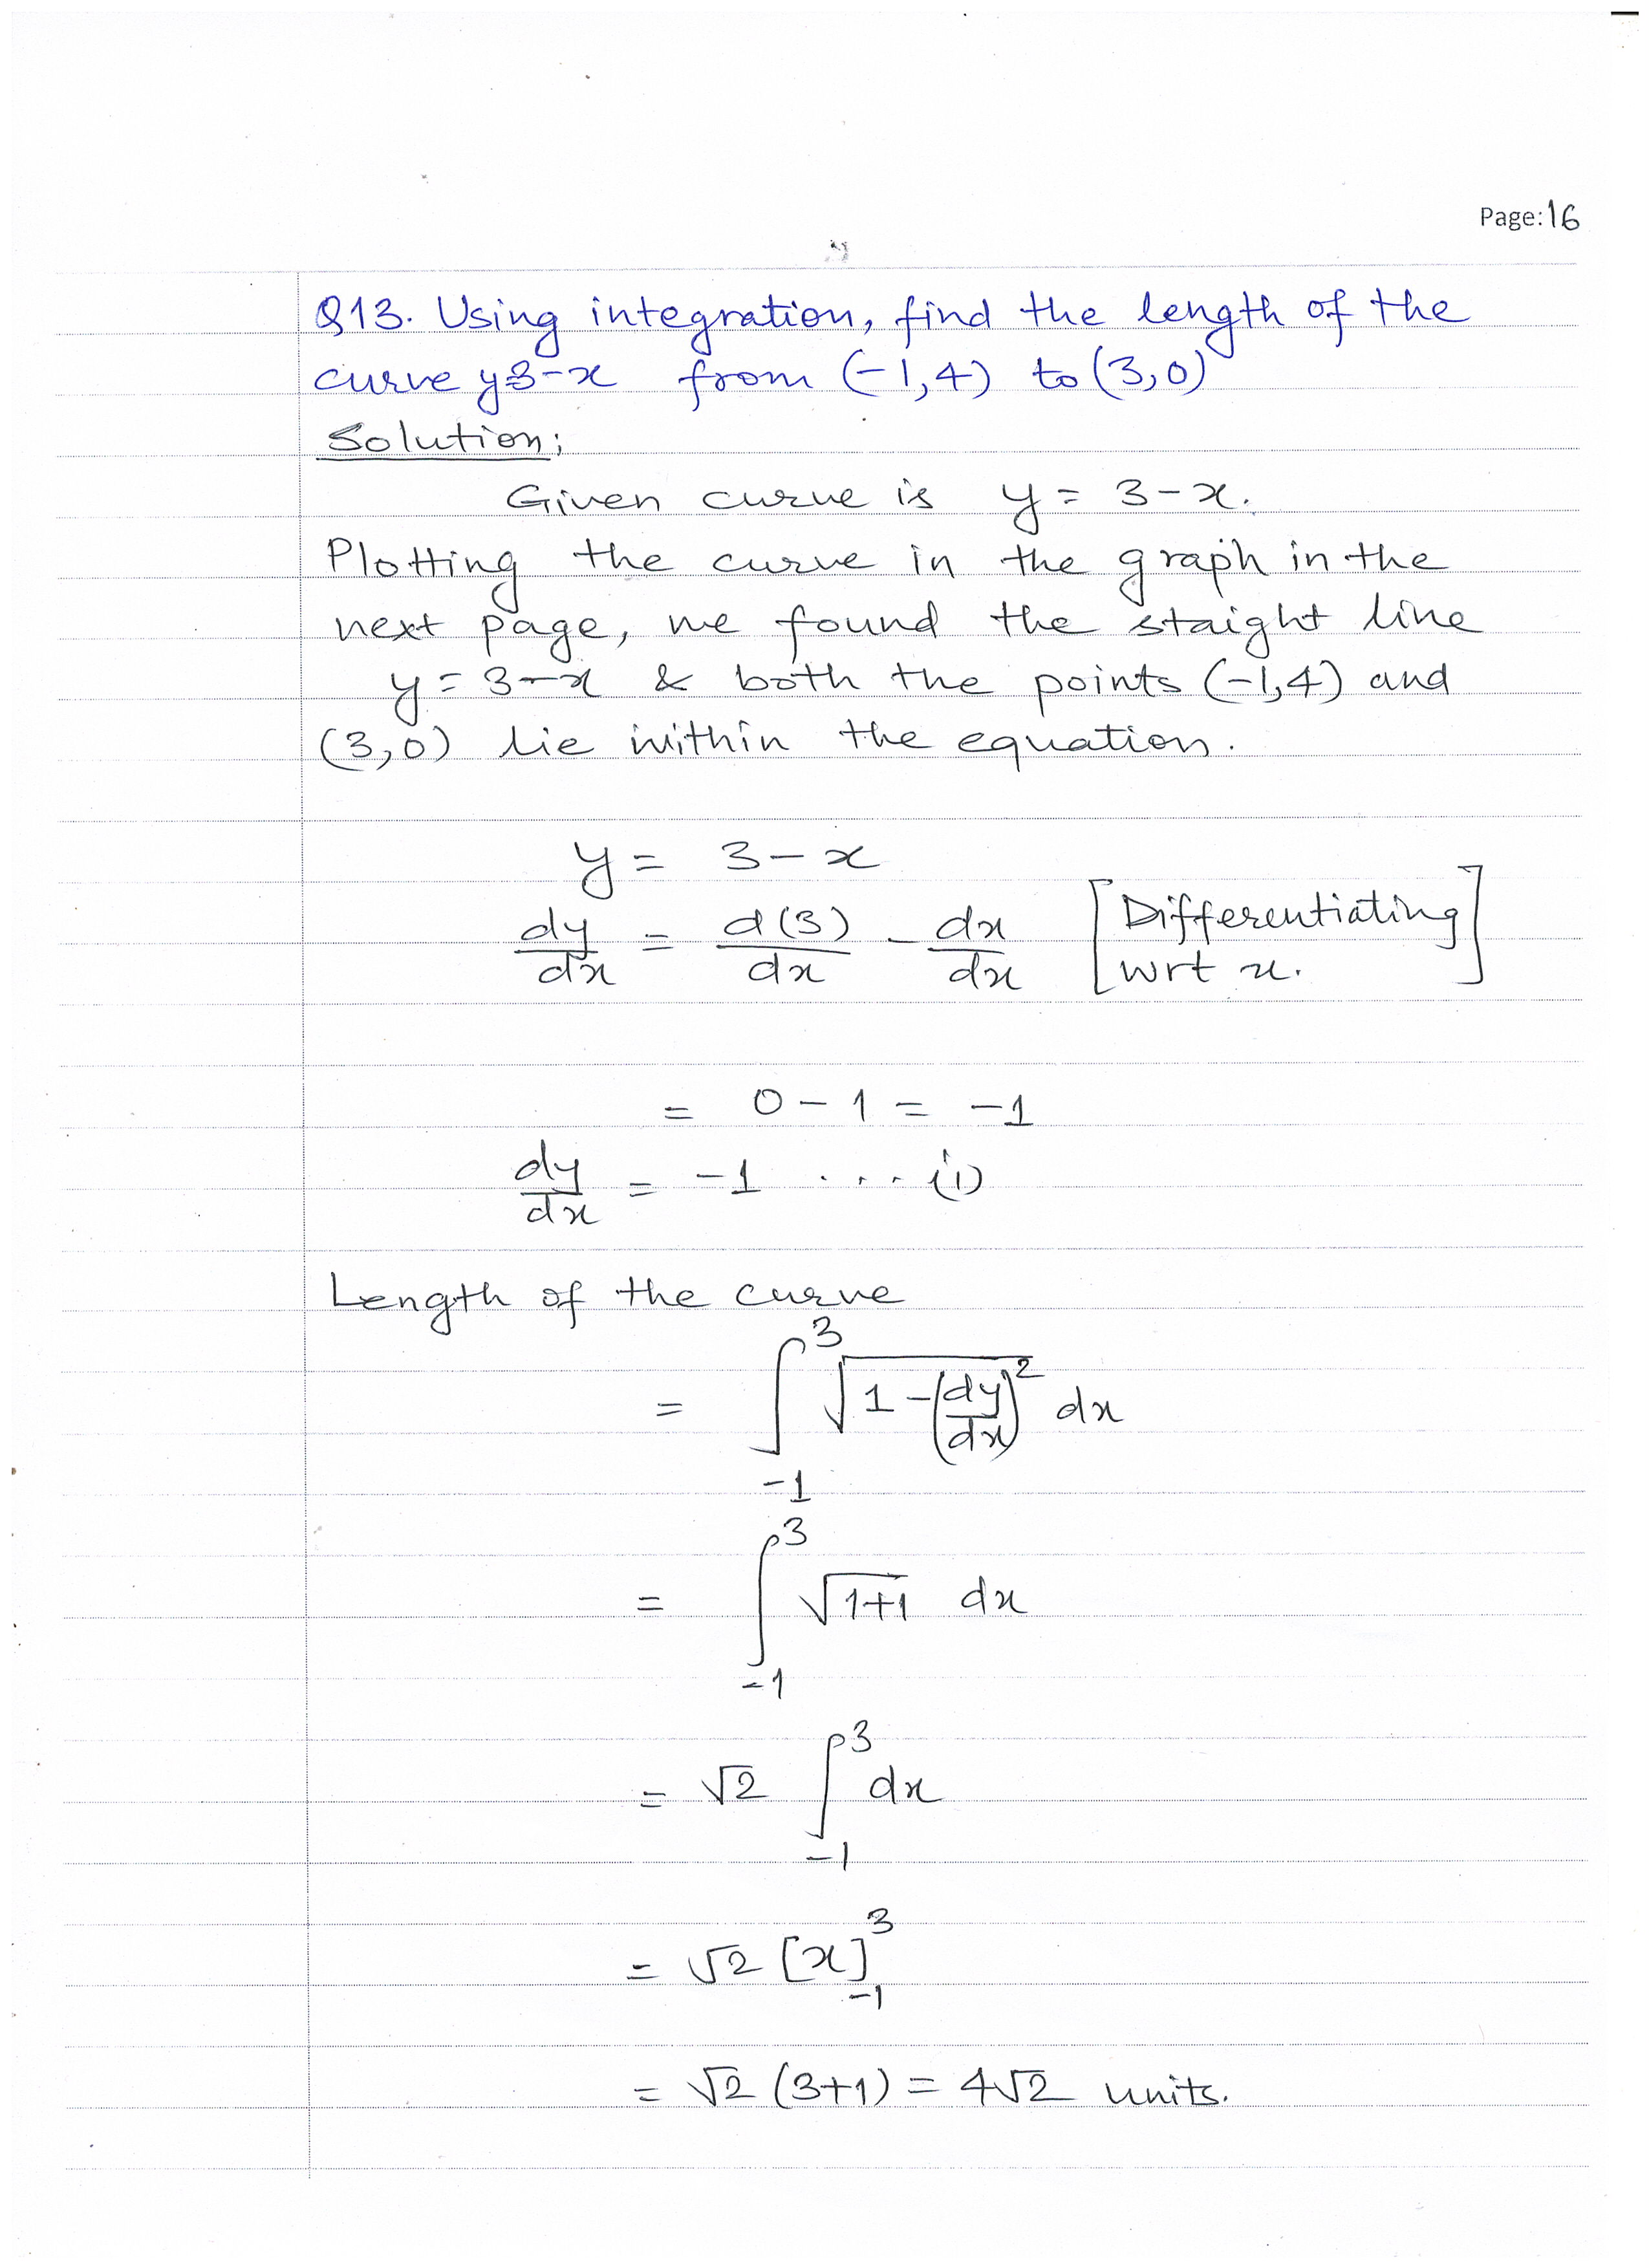 Page:16
Q13. Using integration, find the length of the
curve y=3-x from (-1,4) to (3,0)
Solution:
Given curve is y = 3-x.
Plotting the curve in the graph in the
next page, we found the staight line
y = 3-x & both the points (-1,4) and
(3,0) lie within the equation.
y = 3-x
dy/dx = d(3)/dx - dx/dx [Differentiating wrt x.]
= 0-1 = -1
dy/dx = -1 ....(i)
Length of the curve
= ∫_{-1}^{3} √(1-(dy/dx)^2) dx
= ∫_{-1}^{3} √(1+1) dx
= √2 ∫_{-1}^{3} dx
= √2 [x]_{-1}^{3}
= √2 (3+1) = 4√2 units.